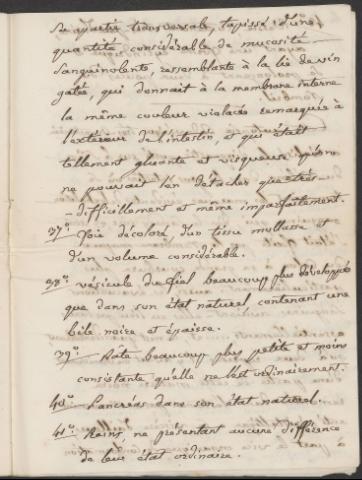 du quartier transversale, tapissé d'une
quantité considérable de mucosité
Sanguinolente ressemblante à la lie de vin
gatée, qui donnait à la membrane interne
la même couleur violacée remarquée à
l'extérieur de l'intestin, et qui était
tellement gluante et visqueuse qu'on
ne pouvait l'en détacher que très
-difficillement et même imparfaitement.
37° Foie décoloré, d'un tissu mollasse et
d'un volume considérable.
38° vésicule du fiel beaucoup plus développée
que dans son état naturel, contenant une
bile noire et épaisse.
39° Rate beaucoup plus petite et moins
consistante qu'elle ne l'est ordinairement.
40° Pancréas dans son état naturel.
41° Reins, ne présentant aucune différence
de leur état ordinaire.